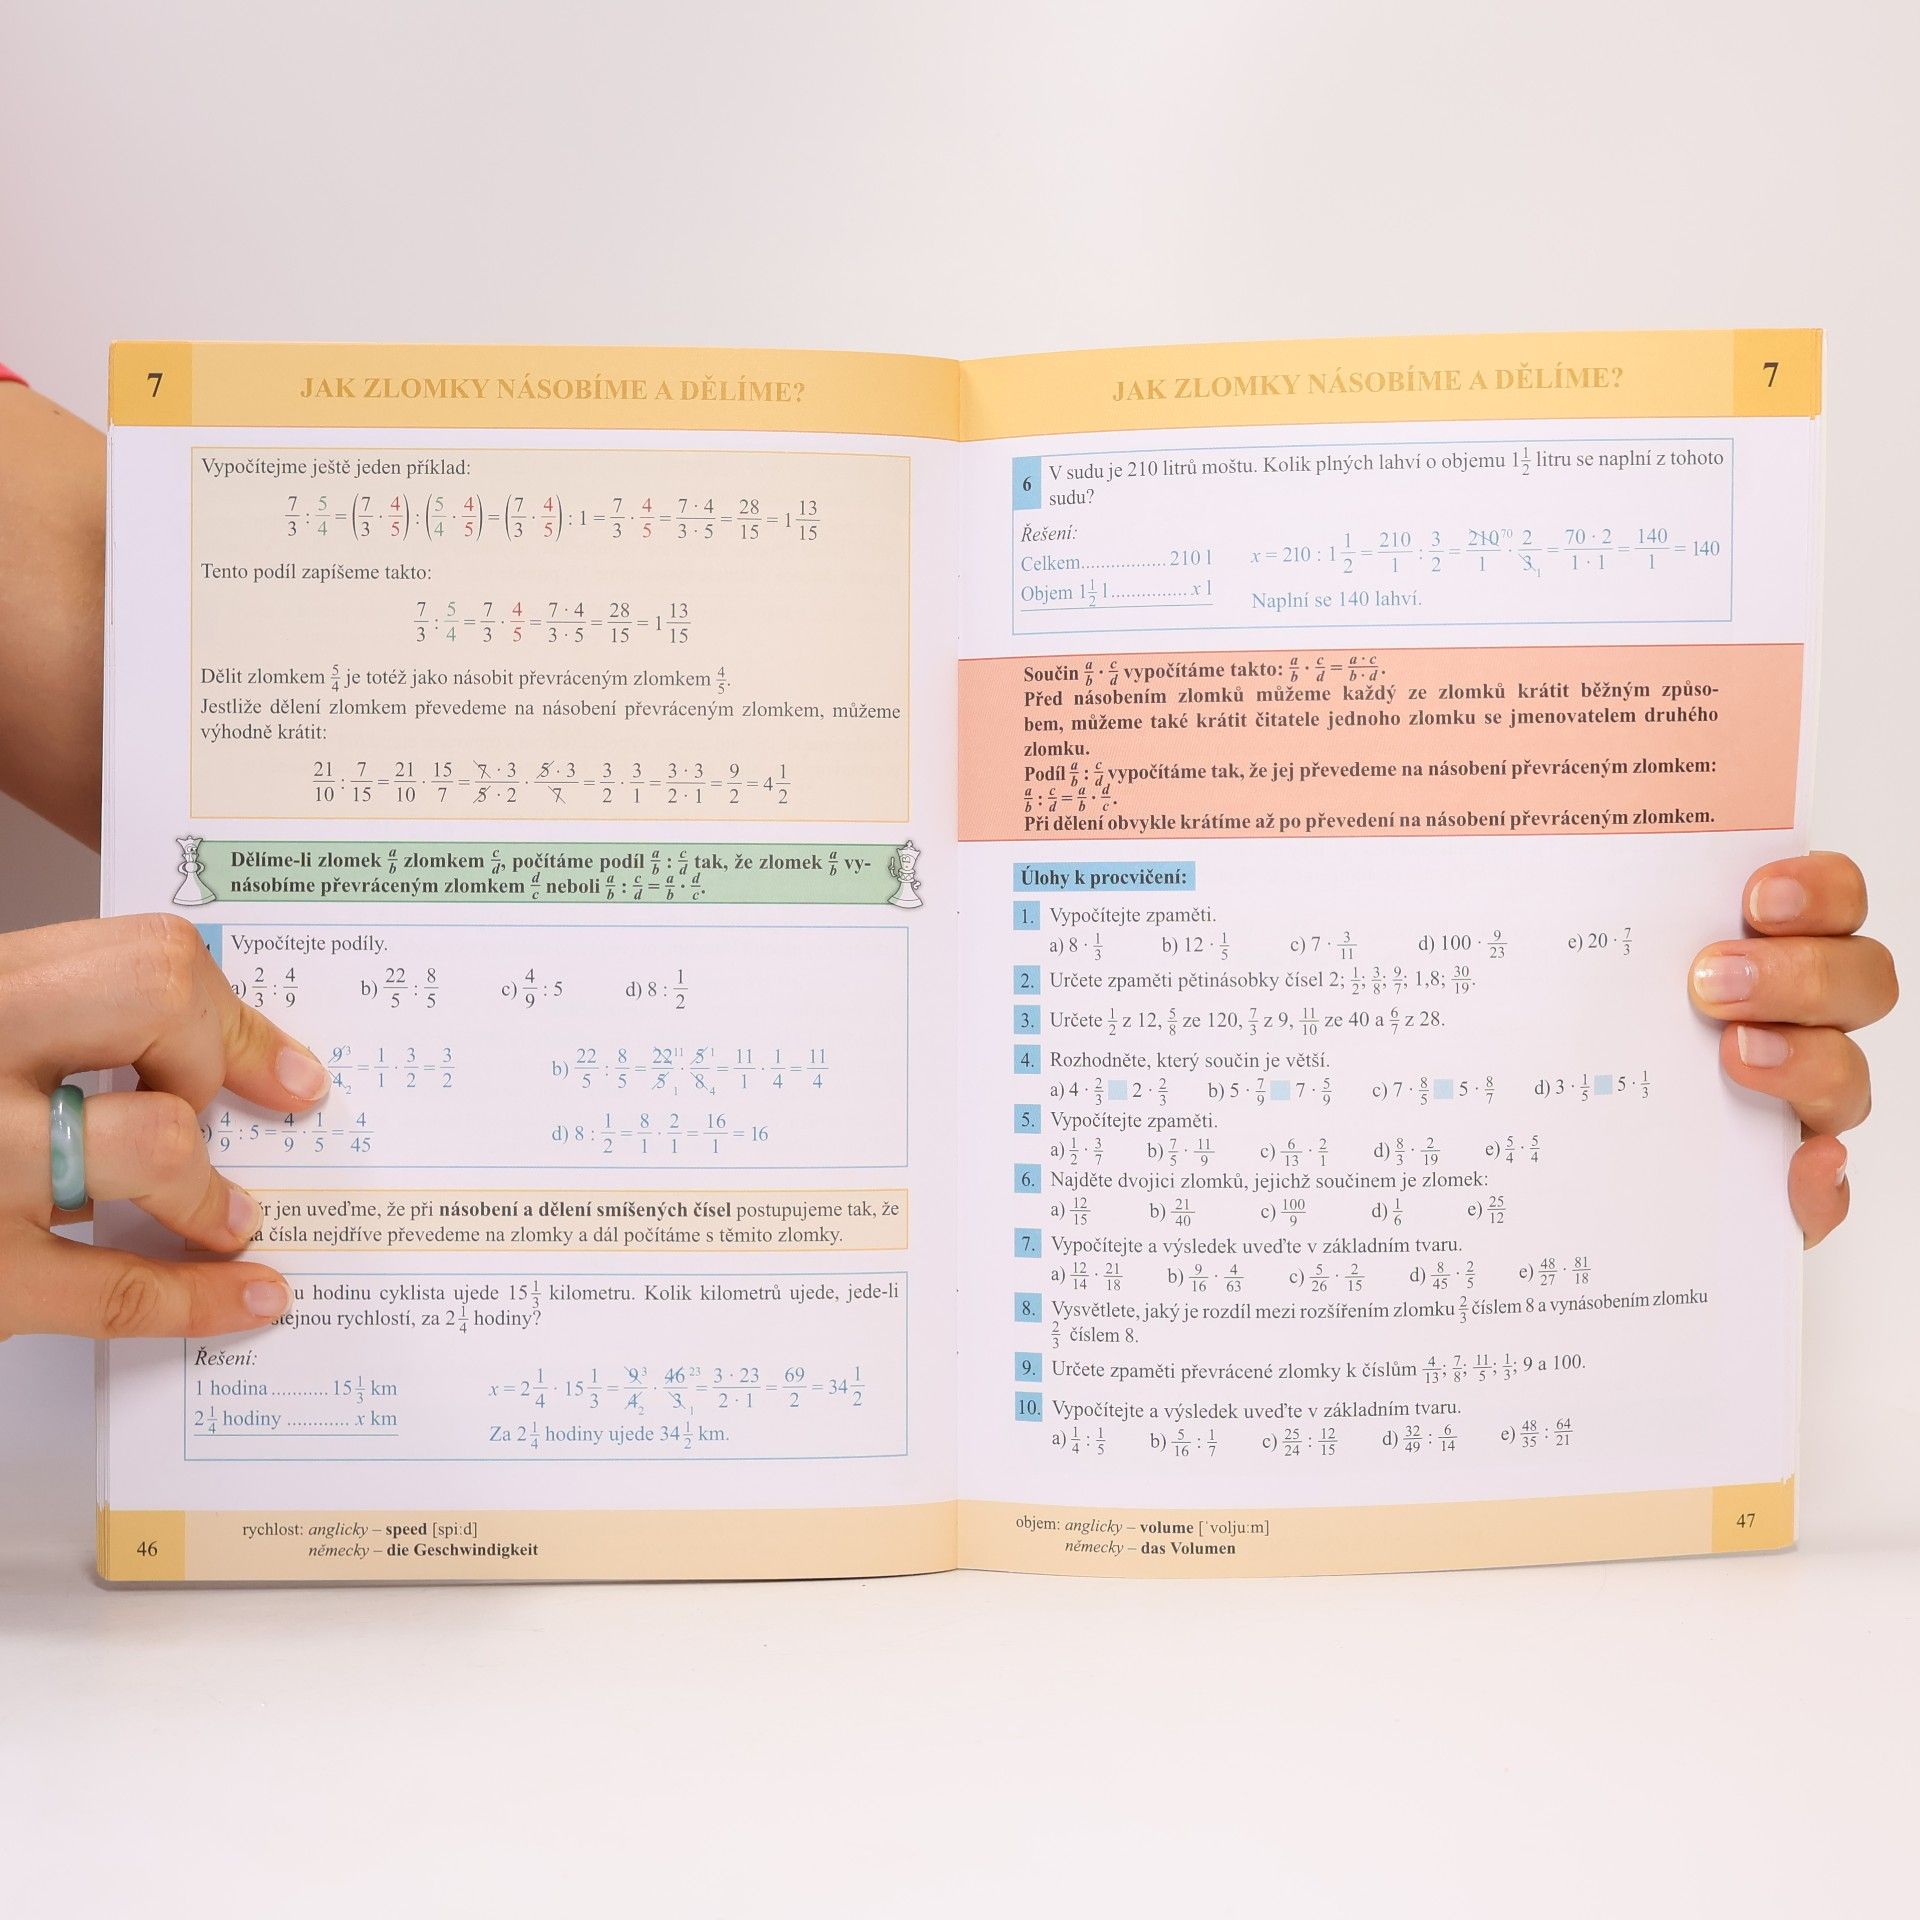 7
JAK ZLOMKY NÁSOBÍME A DĚLÍME?
Vypočítejme ještě jeden příklad:
7/3 : 5/4 = (7/3 · 4/5) : (5/4 · 4/5) = (7/3 · 4/5) : 1 = 7/3 · 4/5 = 7 · 4/3 · 5 = 28/15 = 1 13/15
Tento podíl zapíšeme takto:
7/3 : 5/4 = 7/3 · 4/5 = 7 · 4/3 · 5 = 28/15 = 1 13/15
Dělit zlomkem 5/4 je totéž jako násobit převráceným zlomkem 4/5.
Jestliže dělení zlomkem převedeme na násobení převráceným zlomkem, můžeme
výhodně krátit:
21/10 : 7/15 = 21/10 · 15/7 = 7 · 3/5 · 2 · 5 · 3/7 = 3/2 · 3/1 = 3 · 3/2 · 1 = 9/2 = 4 1/2
Dělíme-li zlomek a/b zlomkem c/d, počítáme podíl a/b : c/d tak, že zlomek a/b vy-
násobíme převráceným zlomkem d/c neboli a/b : c/d = a/b · d/c.
Vypočítejte podíly.
a) 2/3 : 4/9 b) 22/5 : 8/5 c) 4/9 : 5 d) 8 : 1/2
9 3/4 2 = 1/1 · 3/2 = 3/2 b) 22/5 : 8/5 = 22 11/5 1 · 5 1/8 4 = 11/1 · 1/4 = 11/4
4/9 : 5 = 4/9 · 1/5 = 4/45 d) 8 : 1/2 = 8/1 · 2/1 = 16/1 = 16
jen uveďme, že při násobení a dělení smíšených čísel postupujeme tak, že
čísla nejdříve převedeme na zlomky a dál počítáme s těmito zlomky.
hodinu cyklista ujede 15 1/3 kilometru. Kolik kilometrů ujede, jede-li
stejnou rychlostí, za 2 1/4 hodiny?
Řešení:
1 hodina ........... 15 1/3 km x = 2 1/4 · 15 1/3 = 9 3/4 2 · 46 23/3 1 = 3 · 23/2 · 1 = 69/2 = 34 1/2
2 1/4 hodiny ............ x km Za 2 1/4 hodiny ujede 34 1/2 km.
46
rychlost: anglicky – speed [spi:d]
německy – die Geschwindigkeit
JAK ZLOMKY NÁSOBÍME A DĚLÍME?
7
6 V sudu je 210 litrů moštu. Kolik plných lahví o objemu 1 1/2 litru se naplní z tohoto
sudu?
Řešení:
Celkem................. 210 l x = 210 : 1 1/2 = 210/1 : 3/2 = 210 70/1 · 2/3 1 = 70 · 2/1 · 1 = 140/1 = 140
Objem 1 1/2 l............... x l Naplní se 140 lahví.
Součin a/b · c/d vypočítáme takto: a/b · c/d = a · c/b · d.
Před násobením zlomků můžeme každý ze zlomků krátit běžným způso-
bem, můžeme také krátit čitatele jednoho zlomku se jmenovatelem druhého
zlomku.
Podíl a/b : c/d vypočítáme tak, že jej převedeme na násobení převráceným zlomkem:
a/b : c/d = a/b · d/c.
Při dělení obvykle krátíme až po převedení na násobení převráceným zlomkem.
Úlohy k procvičení:
1. Vypočítejte zpaměti.
a) 8 · 1/3 b) 12 · 1/5 c) 7 · 3/11 d) 100 · 9/23 e) 20 · 7/3
2. Určete zpaměti pětinásobky čísel 2; 1/2; 3/8; 9/7; 1,8; 30/19.
3. Určete 1/2 z 12, 5/8 ze 120, 7/3 z 9, 11/10 ze 40 a 6/7 z 28.
4. Rozhodněte, který součin je větší.
a) 4 · 2/3 2 · 2/3 b) 5 · 7/9 7 · 5/9 c) 7 · 8/5 5 · 8/7 d) 3 · 1/5 5 · 1/3
5. Vypočítejte zpaměti.
a) 1/2 · 3/7 b) 7/5 · 11/9 c) 6/13 · 2/1 d) 8/3 · 2/19 e) 5/4 · 5/4
6. Najděte dvojici zlomků, jejichž součinem je zlomek:
a) 12/15 b) 21/40 c) 100/9 d) 1/6 e) 25/12
7. Vypočítejte a výsledek uveďte v základním tvaru.
a) 12/14 · 21/18 b) 9/16 · 4/63 c) 5/26 · 2/15 d) 8/45 · 2/5 e) 48/27 · 81/18
8. Vysvětlete, jaký je rozdíl mezi rozšířením zlomku 2/3 číslem 8 a vynásobením zlomku
2/3 číslem 8.
9. Určete zpaměti převrácené zlomky k číslům 4/13; 7/8; 11/5; 1/3; 9 a 100.
10. Vypočítejte a výsledek uveďte v základním tvaru.
a) 1/4 : 1/5 b) 5/16 : 1/7 c) 25/24 : 12/15 d) 32/49 : 6/14 e) 48/35 : 64/21
objem: anglicky – volume [ˈvolju:m]
německy – das Volumen
47